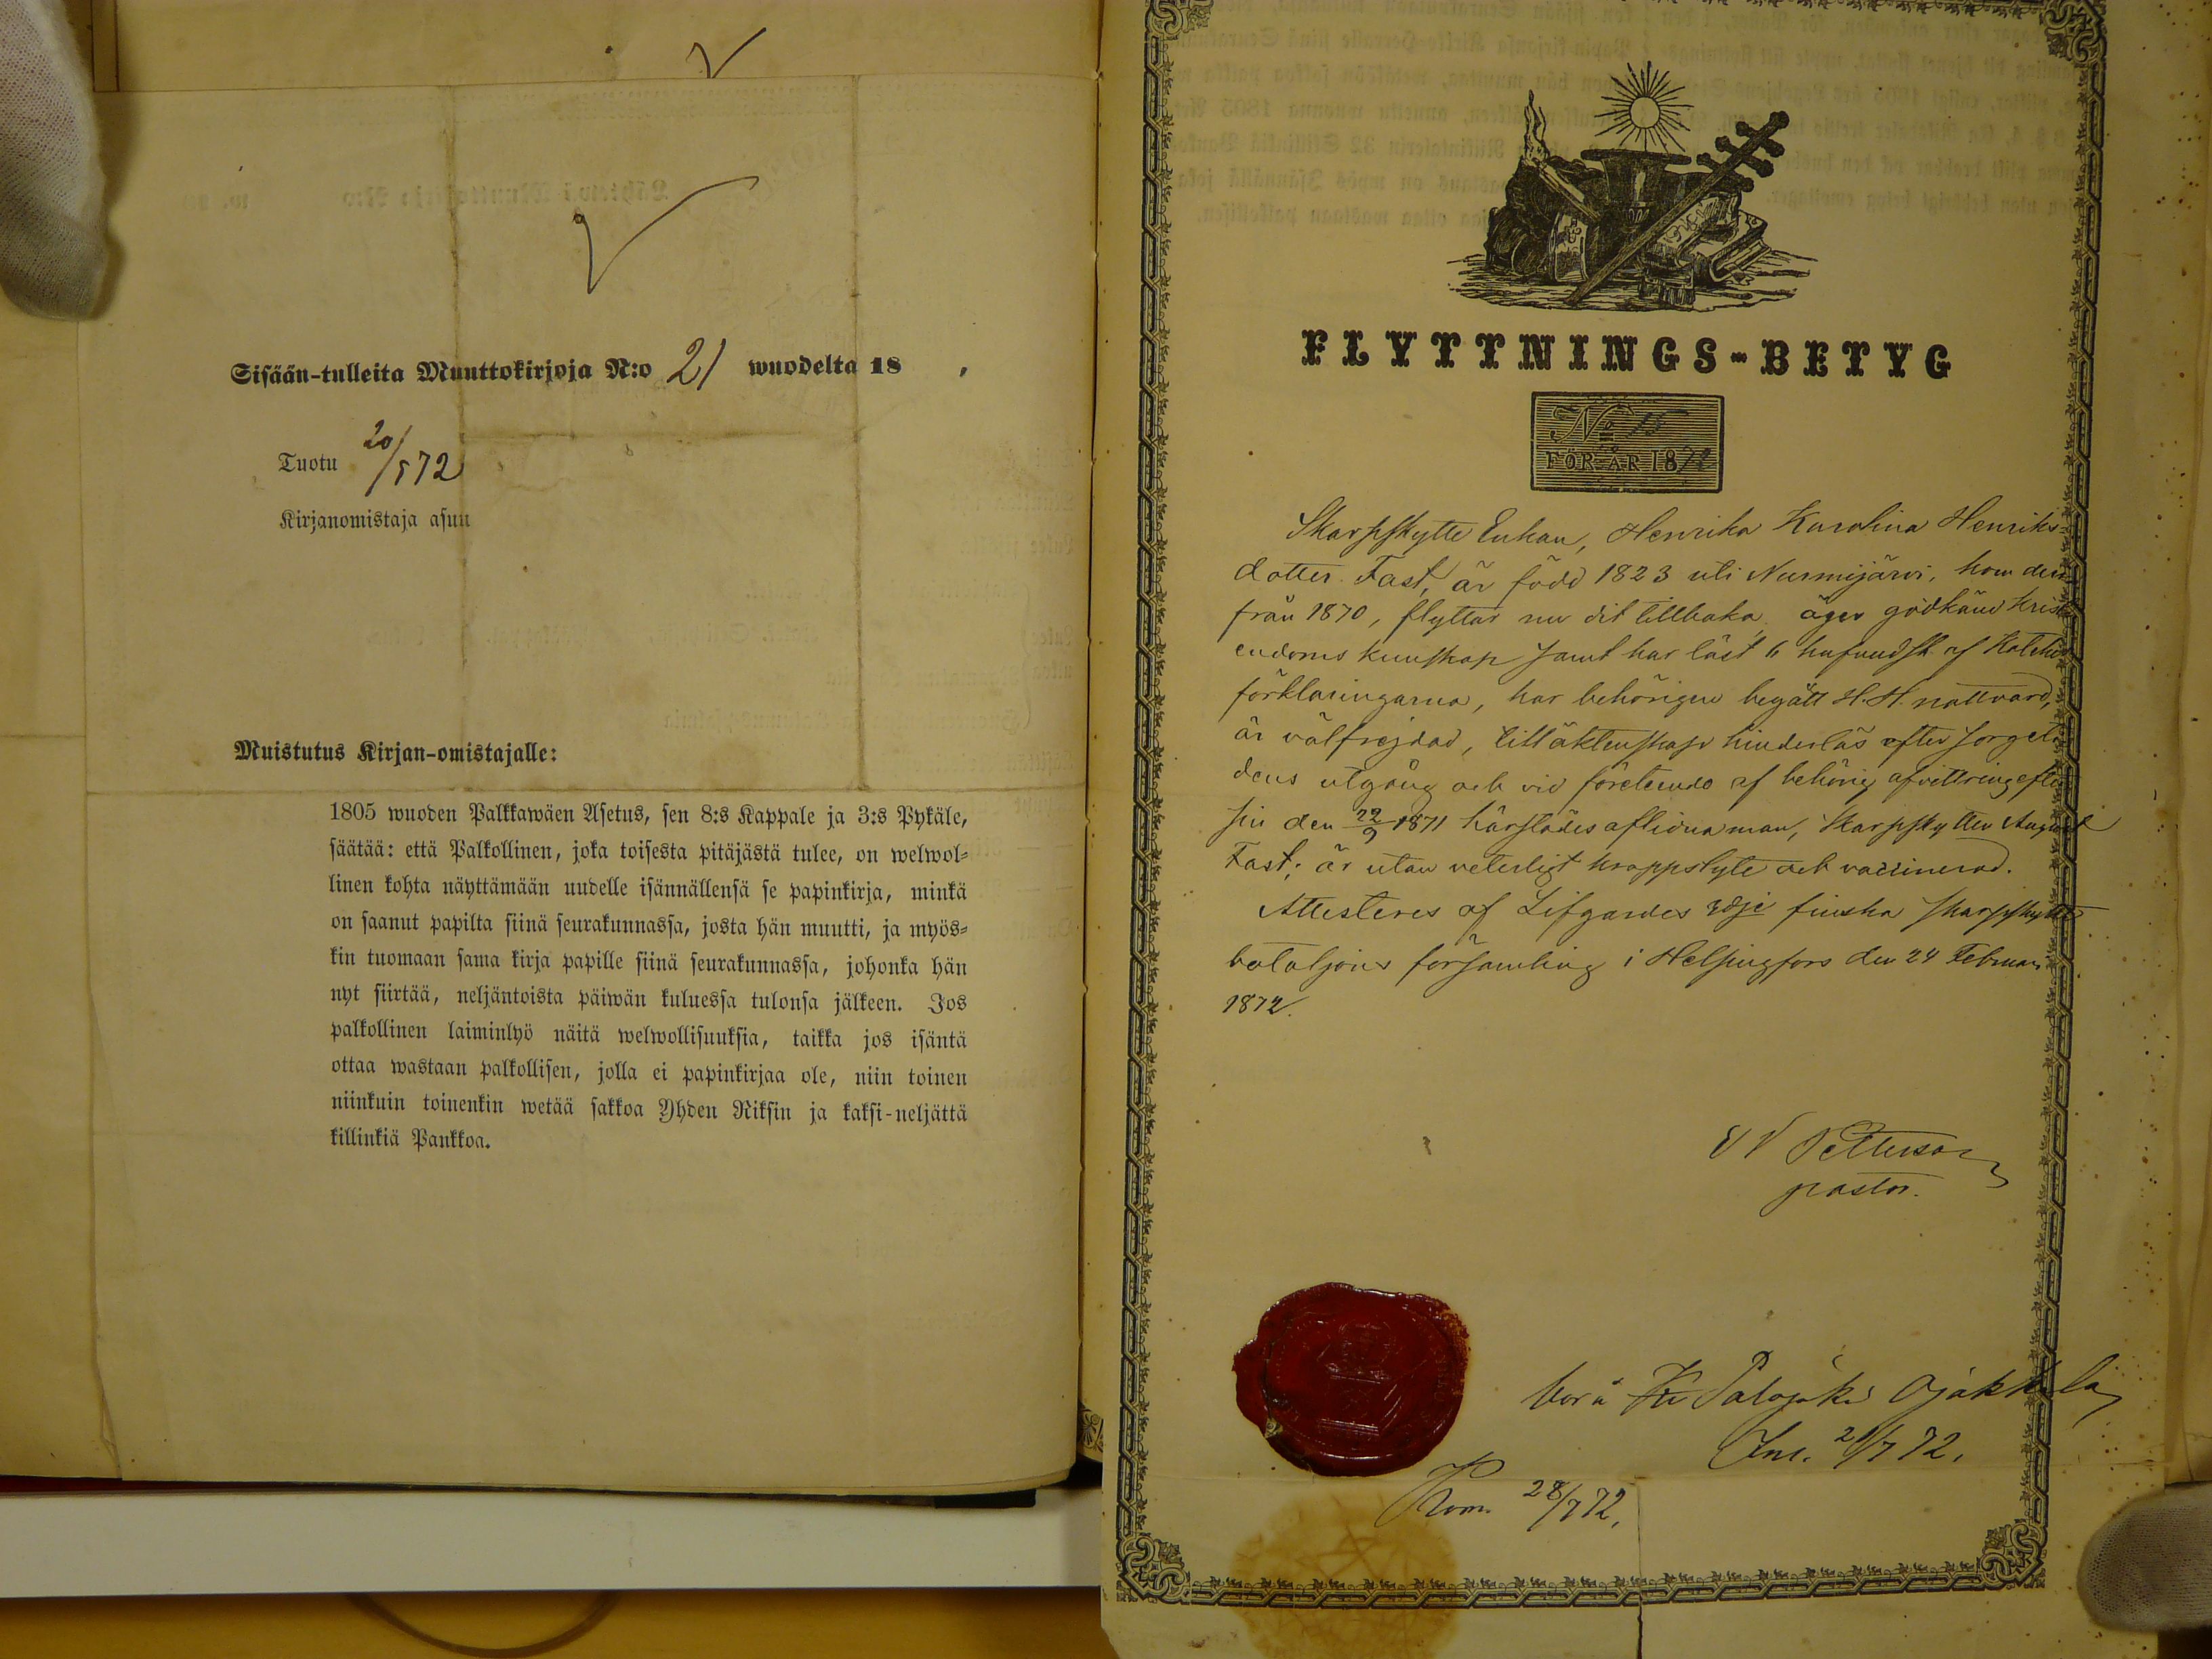 Sisään-tulleita Muuttokirjoja N:o 21 wuodelta 18 ,
Tuotu 20/5 72
Kirjanomistaja asuu
Muistutus Kirjan-omistajalle:
1805 wuoden Palkkawäen Asetus, sen 8:s Kappale ja 3:s Pykäle,
säätää: että Palkollinen, joka toisesta pitäjästä tulee, on welwol-
linen kohta näyttämään uudelle isännällensä se papinkirja, minkä
on saanut papilta siinä seurakunnassa, josta hän muutti, ja myös-
kin tuomaan sama kirja papille siinä seurakunnassa, johonka hän
nyt siirtää, neljäntoista päiwän kuluessa tulonsa jälkeen. Jos
palkollinen laiminlyö näitä welwollisuuksia, taikka jos isäntä
ottaa wastaan palkollisen, jolla ei papinkirjaa ole, niin toinen
niinkuin toinenkin wetää sakkoa Yhden Riksin ja kaksi-neljättä
killinkiä Pankkoa.
FLYTTNINGS-BETYG
No 15
FÖR ÅR 1872
Skarpskytte Enkan, Henrika Karolina Henriks-
dotter Fast, är född 1823 uti Nurmijärvi, kom der
från 1870, flyttar nu dit tillbaka, äger godkänd Krist
endoms kunskap samt har läst 6 hufvudst. af Kateches
förklaringarna, har behörigen begått H. H. nattvard,
är välfrejdad, till äktenskap hinderlös efter sorgeti
dens utgång och vid företeende af behörig afvittring efter
sin den 22/9 1871 härstädes aflidna man, Skarpskytten August
Fast; är utan veterligt kroppslyte och vaccinerad.
Attesteres af Lifgardes 3dje finska skarpskytte
bataljons församling i Helsingfors den 24 Februari
1872.
Petterson
pastor.
Palojoki Ojakkala
Inl. 21/7 72.
Kom. 28/7 72.